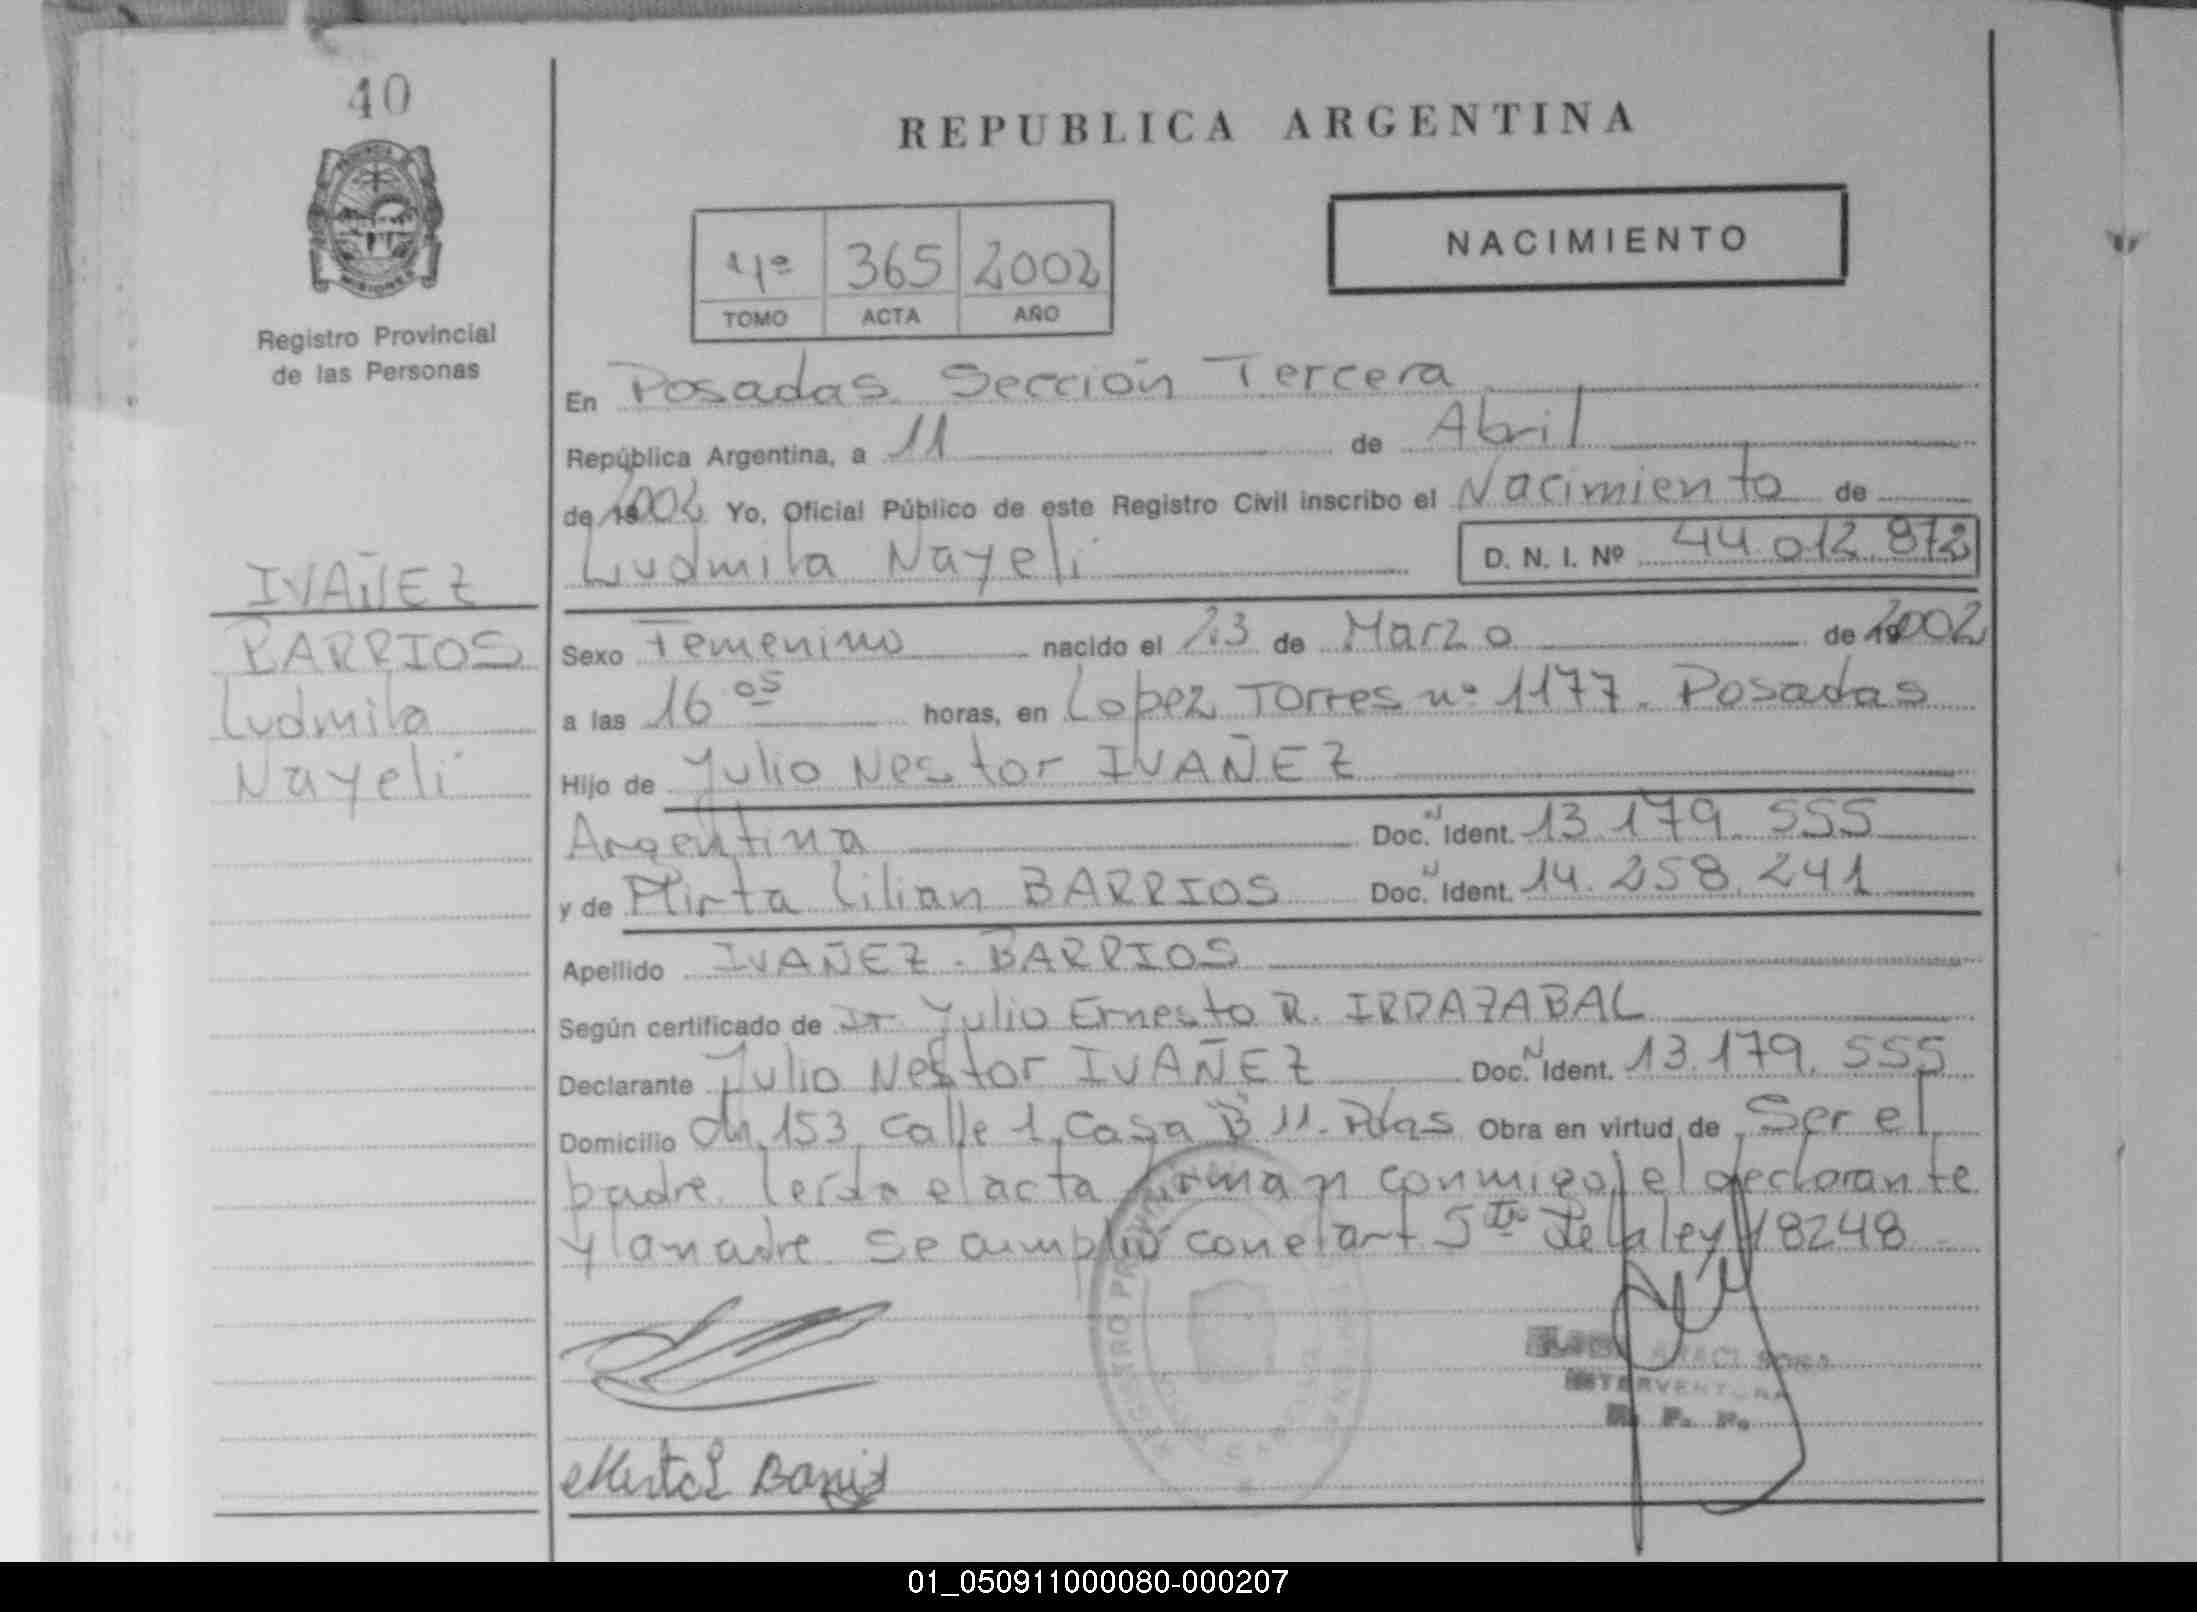 40
REPUBLICA ARGENTINA
MISIONES
Registro Provincial
de las Personas
4º 365 2002
TOMO ACTA AÑO
NACIMIENTO
En Posadas Sección Tercera
República Argentina, a 11 de Abril
de 2002 Yo, Oficial Público de este Registro Civil inscribo el Nacimiento de
Ludmila Nayeli D. N. I. Nº 44.012.872
IVAÑEZ
BARRIOS
Ludmila
Nayeli
Sexo Femenino nacido el 23 de Marzo de 2002
a las 16 05 horas, en Lopez Torres nº 1177. Posadas
Hijo de Julio Nestor IVAÑEZ
Argentina Doc. N Ident. 13.179.555
y de Mirta Lilian BARRIOS Doc. N Ident. 14.258.241
Apellido IVAÑEZ - BARRIOS
Según certificado de Dr. Julio Ernesto R. IRDAZABAL
Declarante Julio Nestor IVAÑEZ Doc. N Ident. 13.179.555
Domicilio Ch 153 Calle 1 Casa B 11. Pdas Obra en virtud de Ser el
padre. leída el acta firman conmigo, el declarante
y la madre. Se cumplió con el art. 5to de la ley 18248
REGISTRO
INTERVENTORA
R. P. P.
Mirta L Barrios
01_050911000080-000207